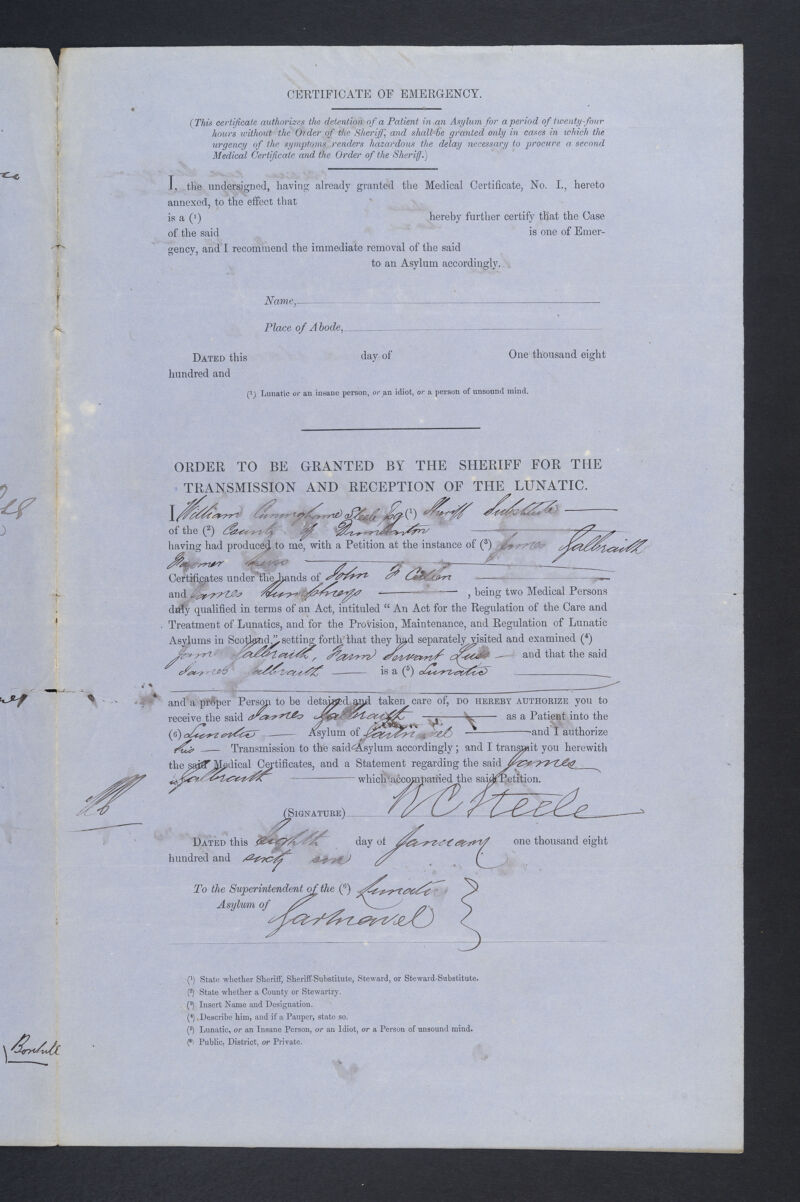 CERTIFICATE OF EMERGENCY.
(This certificate authorizes the detention of a Patient in an Asylum for a period of twenty-four
hours without the Order of the Sheriff, and shall be granted only in cases in which the
urgency of the symptoms renders hazardous the delay necessary to procure a second
Medical Certificate and the Order of the Sheriff.)
I, the undersigned, having already granted the Medical Certificate, No. I., hereto
annexed, to the effect that
is a (1) hereby further certify that the Case
of the said is one of Emer-
gency, and I recommend the immediate removal of the said
to an Asylum accordingly.
Name,
Place of Abode,
DATED this day of One thousand eight
hundred and
(1) Lunatic or an insane person, or an idiot, or a person of unsound mind.
ORDER TO BE GRANTED BY THE SHERIFF FOR THE
TRANSMISSION AND RECEPTION OF THE LUNATIC.
I William Cunninghame Steele Esq (1) Sheriff Substitute
of the (2) County of Dumbarton
having had produced to me, with a Petition at the instance of (3) James Galbraith
Farmer Luss
Certificates under the hands of John
and James Humphreys, being two Medical Persons
duly qualified in terms of an Act, intituled “ An Act for the Regulation of the Care and
Treatment of Lunatics, and for the Provision, Maintenance, and Regulation of Lunatic
Asylums in Scotland,” setting forth that they had separately visited and examined (4)
James Galbraith, Farm Servant Luss and that the said
James Galbraith is a (5) Lunatic
and a proper Person to be detained and taken care of, DO HEREBY AUTHORIZE you to
receive the said James Galbraith as a Patient into the
(6) Lunatic Asylum of Gartnavel and I authorize
his Transmission to the said Asylum accordingly ; and I transmit you herewith
the said Medical Certificates, and a Statement regarding the said James
Galbraith which accompanied the said Petition.
(SIGNATURE) W C Steele
DATED this Eighth day of January one thousand eight
hundred and sixty one
To the Superintendent of the (6) Lunatic
Asylum of
Gartnavel
(1) State whether Sheriff, Sheriff-Substitute, Steward, or Steward-Substitute.
(2) State whether a County or Stewartry.
(3) Insert Name and Designation.
(4) Describe him, and if a Pauper, state so.
(5) Lunatic, or an Insane Person, or an Idiot, or a Person of unsound mind.
(6) Public, District, or Private.
Bonhill